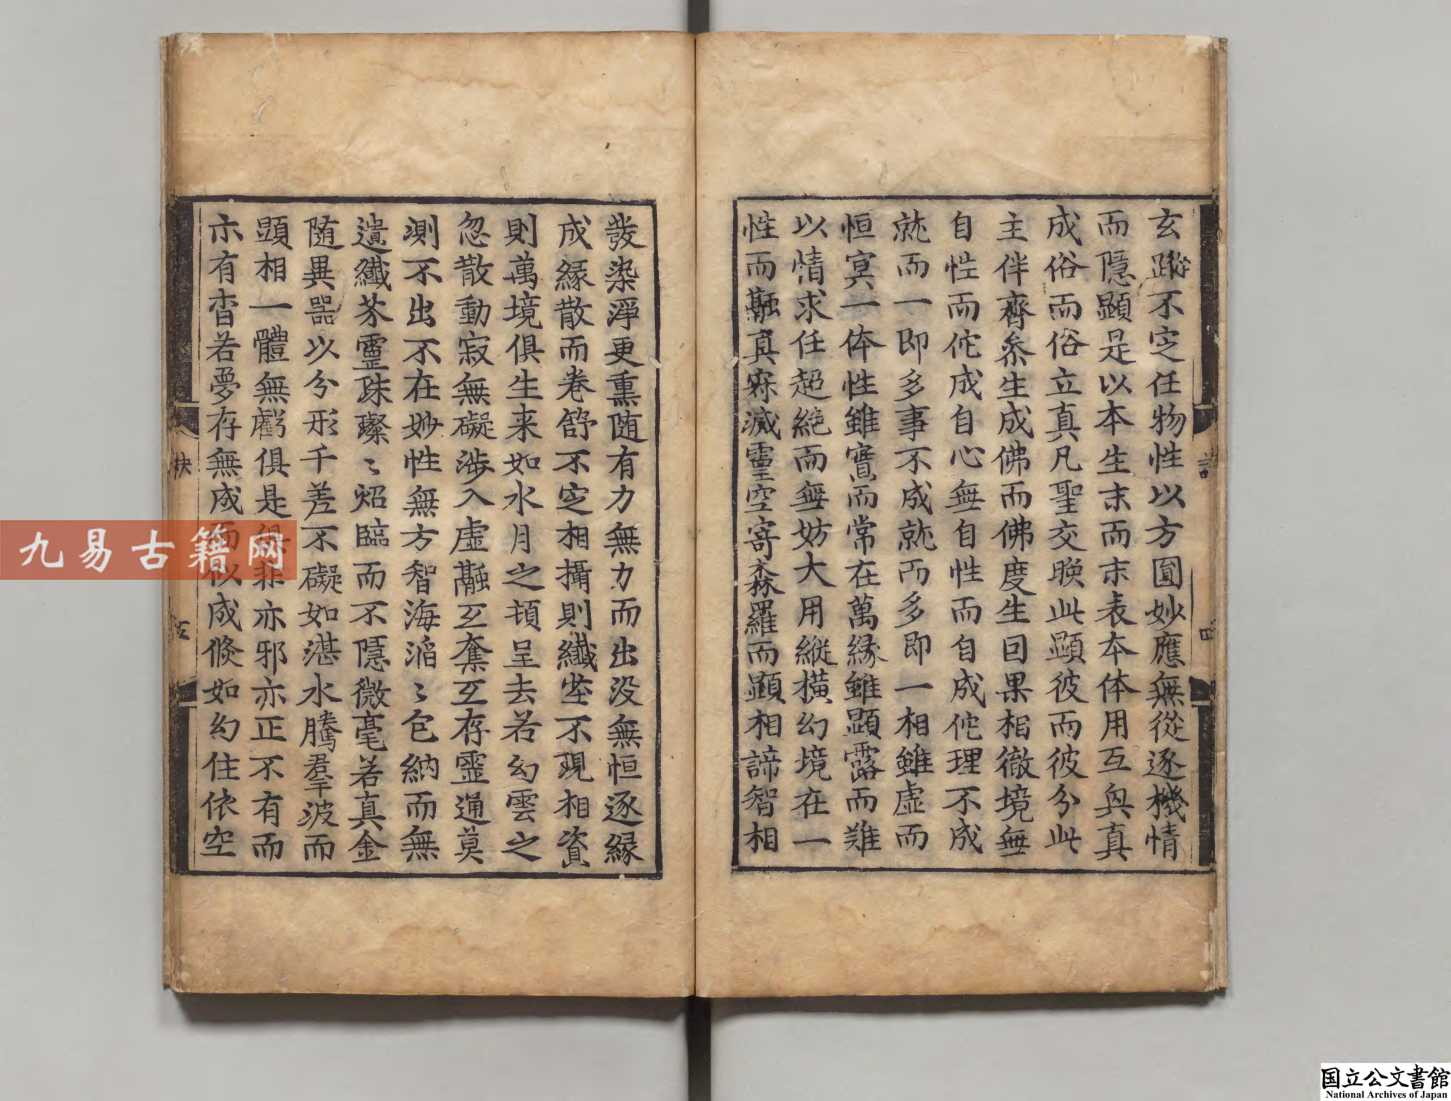 玄蹤不定任物性以方圓妙應無從逐機情
而隱顯是以本生末而末表本体用互與真
成俗而俗立真凡聖交暎此顯彼而彼分此
主伴齊叅生成佛而佛度生回果相徹境無
自性而佗成自心無自性而自成佗理不成
就而一即多事不成就而多即一相雖虛而
恒㝠一体性雖實而常在萬緣雖顯露而難
以情求任超絶而無妨大用縱橫幻境在一
性而融真寂滅靈空寄森羅而顯相諦智相
發染淨更熏随有力無力而出没無恒逐緣
成緣散而卷舒不定相攝則纖塵不現相資
則萬境俱生来如水月之頓呈去若幻雲之
忽散動寂無礙涉入虛融互奪互存靈通莫
測不出不在妙性無方智海滔〻包納而無
遺纖芥靈珠璨〻炤臨而不隱微毫若真金
随異器以分形千差不礙如湛水騰羣波而
顯相一體無虧俱是俱非亦邪亦正不有而
示有杳若夢存無成而似成倏如幻住依空
訣
四
五
九易古籍网
国立公文書館
National Archives of Japan